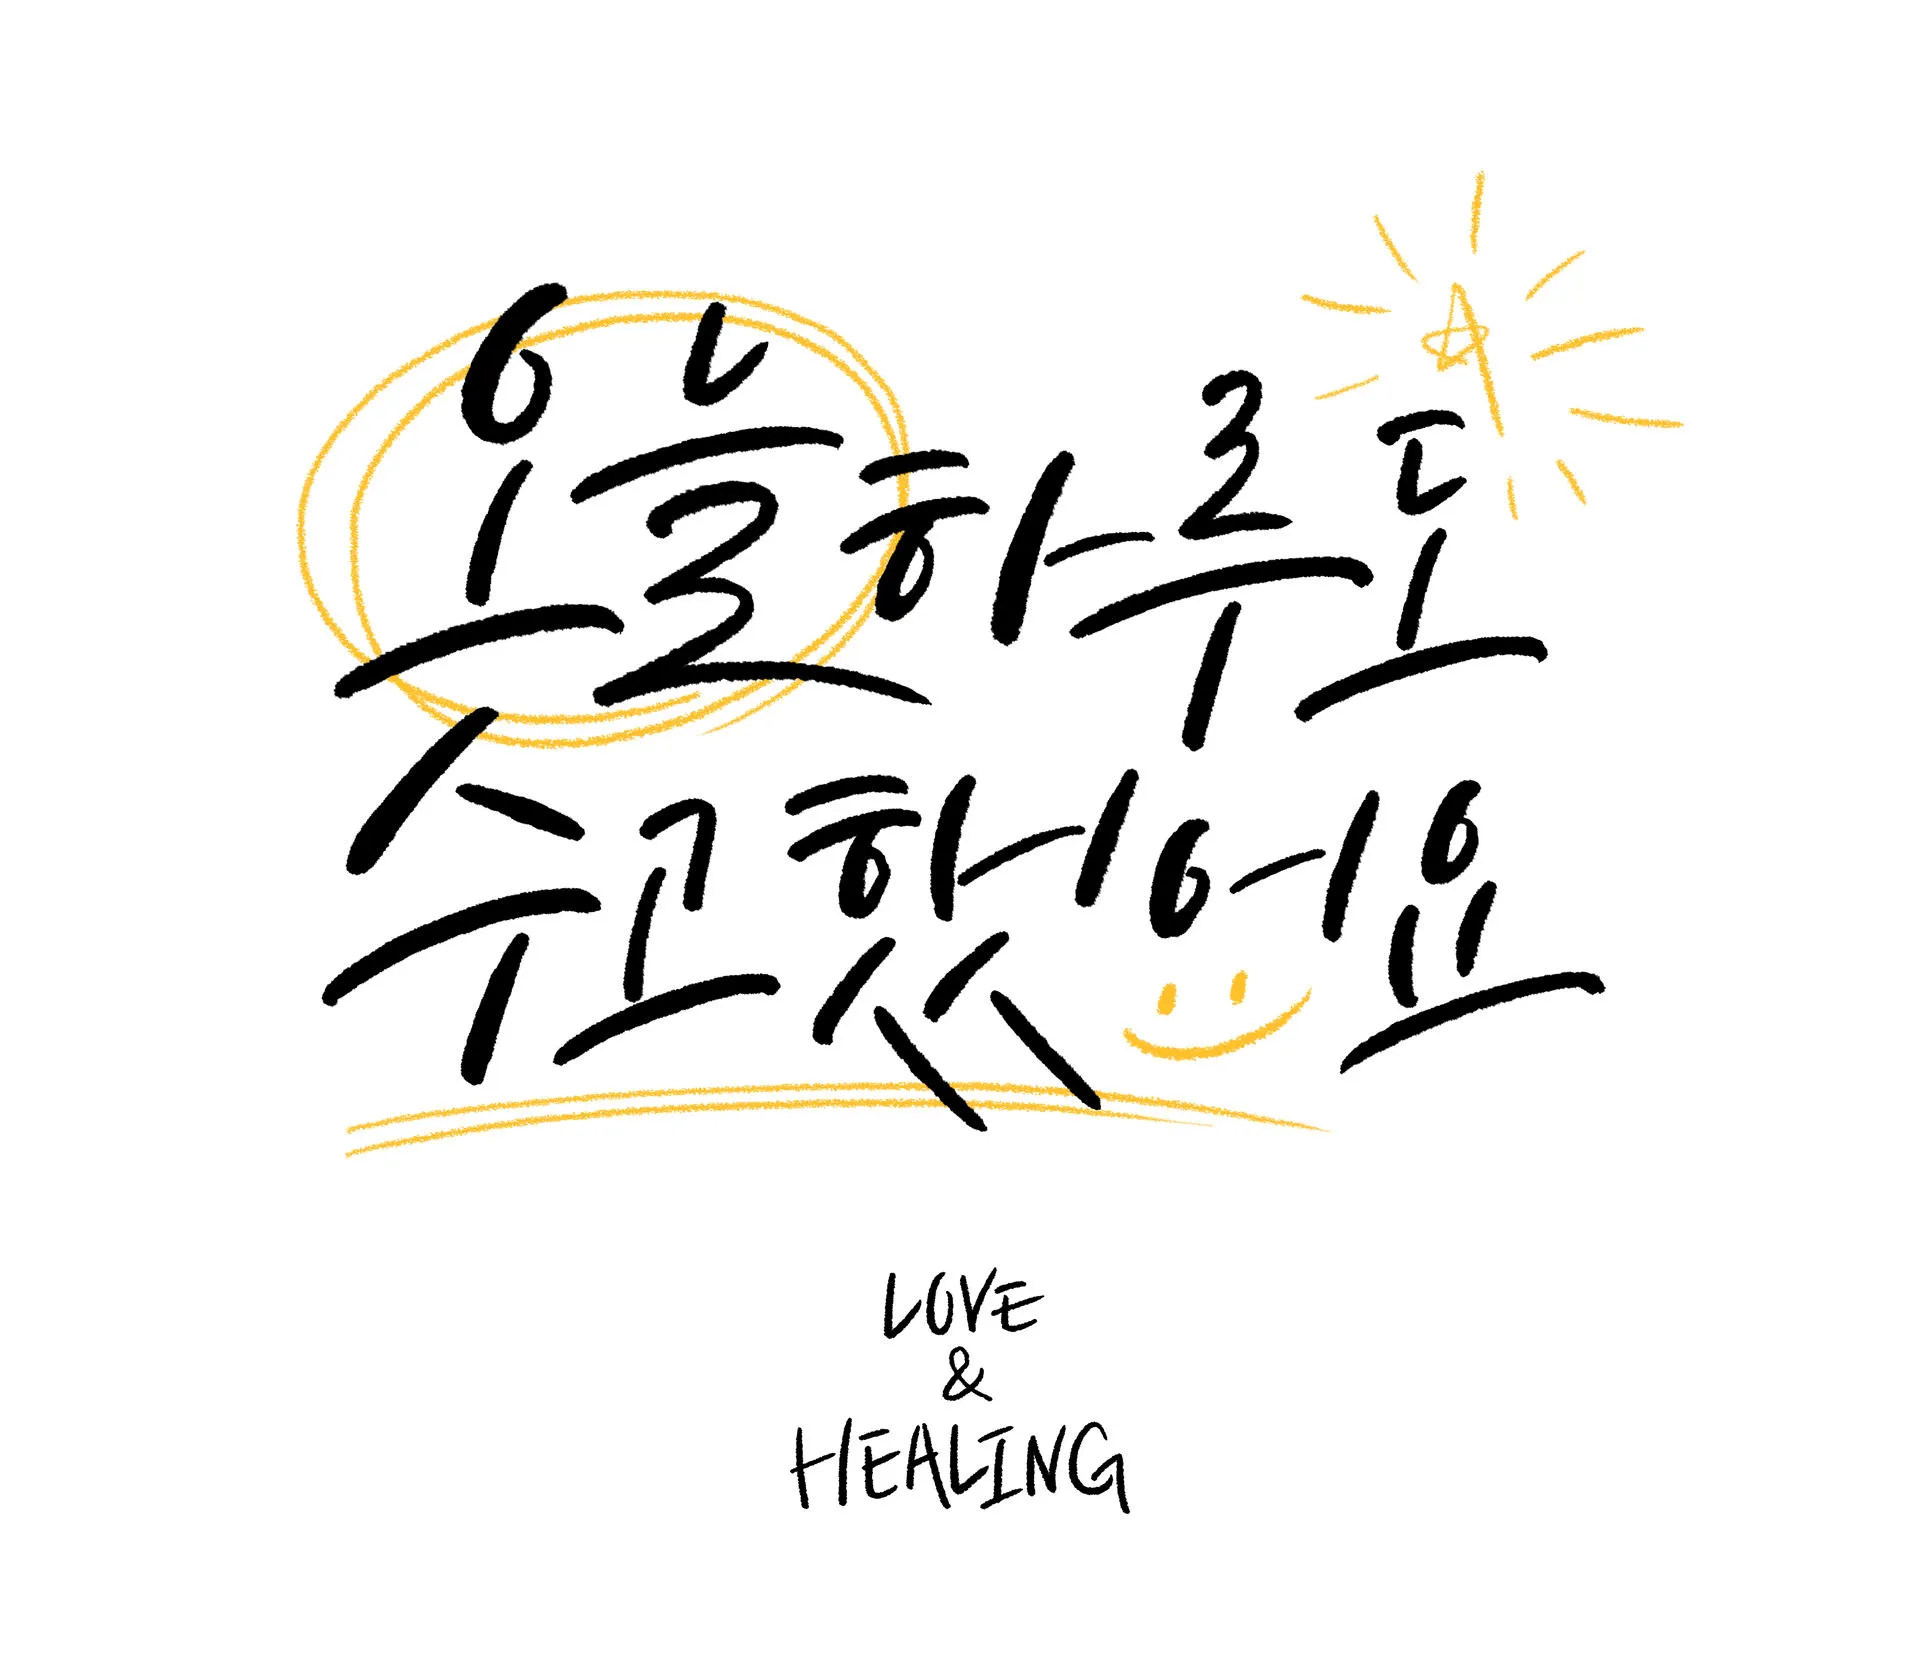 오늘하루도
수고했어요
LOVE
&
HEALING